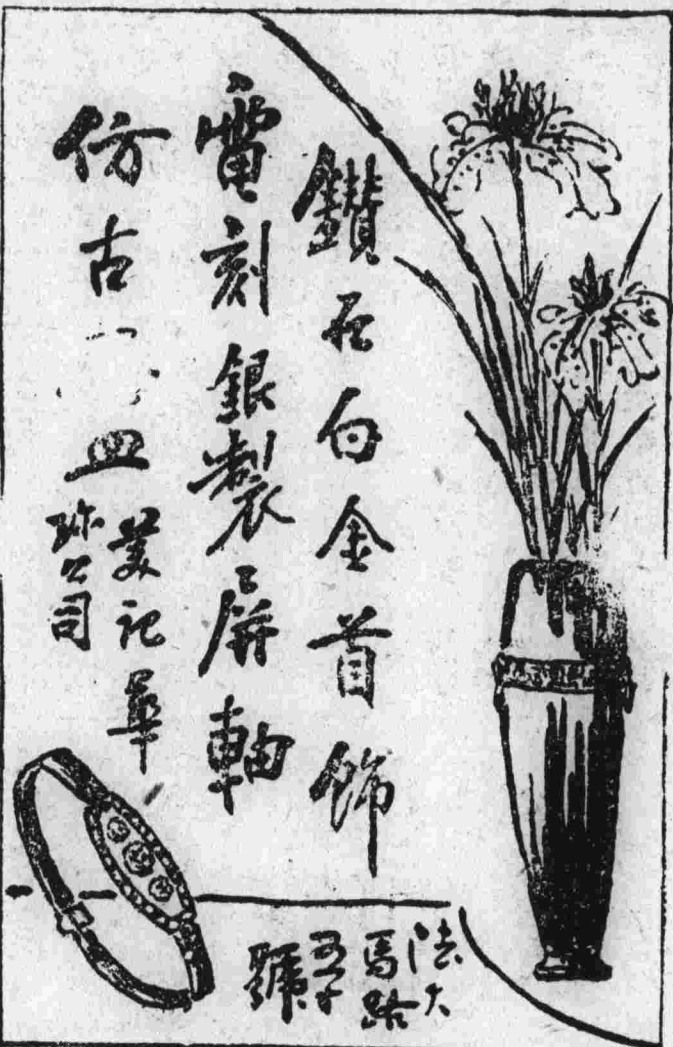 鑽石白金首飾
電刻銀製屏軸
仿古皿
美記華
珍公司
法大
馬路
號